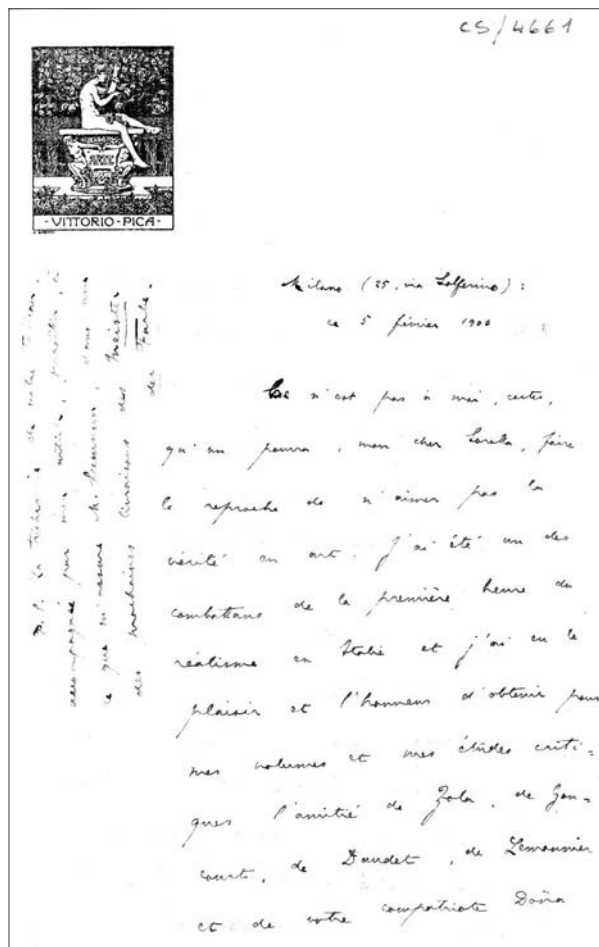 CS/4661
ARTE
· VITTORIO · PICA ·
Milano (25, via Solferino) :
ce 5 février 1900
Ce n'est pas à moi, certes,
qu'on pourra, mon cher Sorolla, faire
le reproche de n'aimer pas la
vérité en art. J'ai été un des
combattans de la première heure du
réalisme en Italie et j'ai eu le
plaisir et l'honneur d'obtenir pour
mes volumes et mes études criti=
ques l'amitié de Zola, de Gon=
court, de Daudet, de Lemonnier
et de votre compatriote Doña
P.S. La de votre
accompagnée par mon article, paraîtra, à
ce que m'assure M. Seemann, dans une
des prochaines livraisons des Meister
der Farbe.